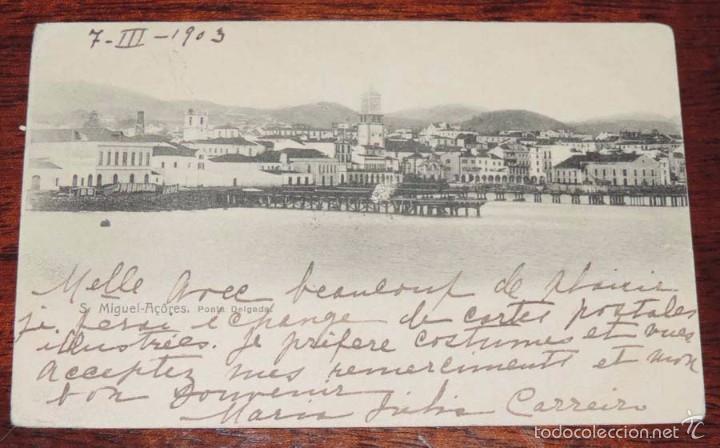 7-III-1903
Melle Avec beaucoup de plaisir
S. Miguel-Açôres. Ponta Delgada.
je ferai echange de cartes postales
illustrées. Je préfere costumes et vues
acceptez mes remerciments et mon
bon Souvenir
Maria Julia Carreiro
todocoleccion.net